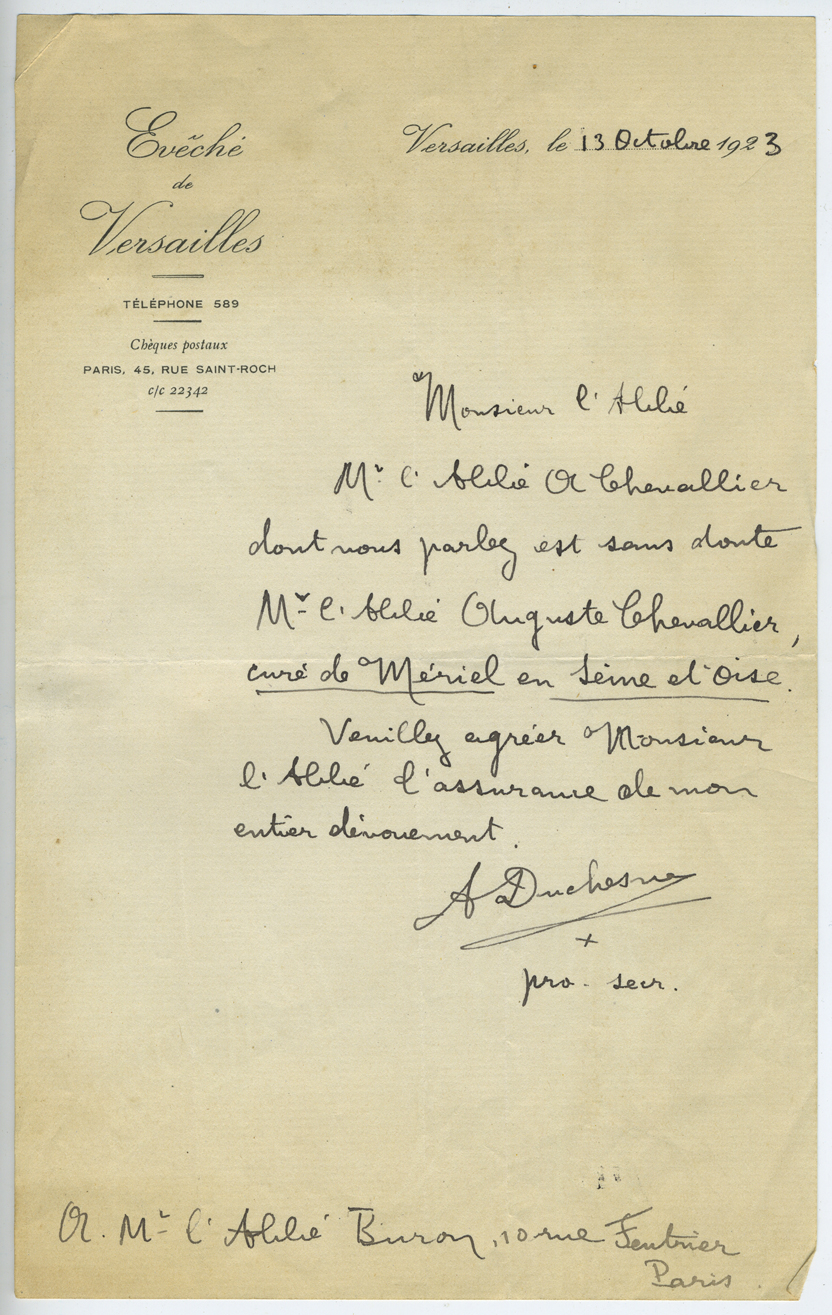 Evêché
de
Versailles
TÉLÉPHONE 589
Chèques postaux
PARIS, 45, RUE SAINT-ROCH
c/c 22342
Versailles, le 13 Octobre 1923
Monsieur l'Abbé
Mr l'Abbé A Chevallier
dont vous parlez est sans doute
Mr l'Abbé Auguste Chevallier,
curé de Mériel en Seine et Oise.
Veuillez agréer Monsieur
l'Abbé l'assurance de mon
entier dévouement.
A Duchesne
+
pro. secr.
A. Mr l'Abbé Buron, 10 rue Feutrier
Paris.